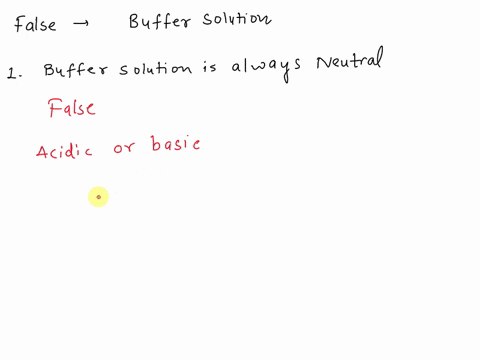 False → Buffer Solution
1. Buffer solution is always Neutral
False
Acidic or basic